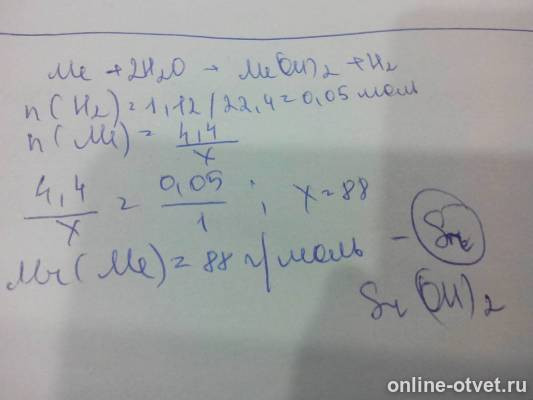 Me + 2H2O → Me(OH)2 + H2
n(H2) = 1,12/22,4 = 0,05 моль
n(Me) = 4,4/x
4,4/x = 0,05/1 ; x = 88
Mr(Me) = 88 г/моль – Sr
Sr(OH)2
online-otvet.ru